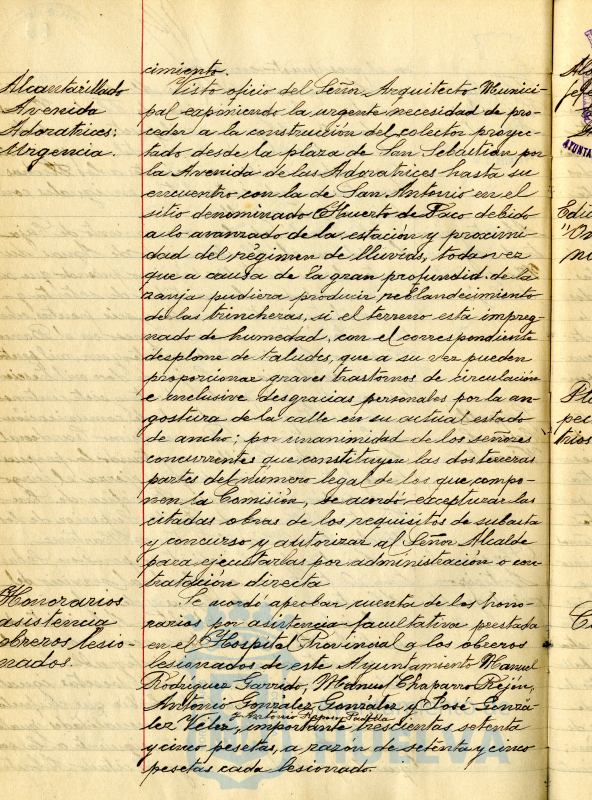 cimiento.
Alcantarillado
Avenida
Adoratrices:
Urgencia.
Visto oficio del Señor Arquitecto Munici-
pal exponiendo la urgente necesidad de pro-
ceder a la construcción del colector proyec-
tado desde la plaza de San Sebastian por
la Avenida de las Adoratrices hasta su
encuentro con la de San Antonio en el
sitio denominado Huerto de Paco debido
a lo avanzado de la estación y proximi-
dad del régimen de lluvias, toda vez
que a causa de la gran profundid. de la
zanja pudiera producir reblandecimiento
de las trincheras, si el terreno está impreg-
nado de humedad, con el correspondiente
desplome de taludes, que a su vez pueden
proporcionar graves trastornos de circulación
e inclusive desgracias personales por la an-
gostura de la calle en su actual estado
de ancho; por unanimidad de los señores
concurrentes que constituyen las dos terceras
partes del número legal de los que compo-
nen la Comisión, se acordó, exceptuar las
citadas obras de los requisitos de subasta
y concurso y autorizar al Señor Alcalde
para ejecutarlas por administración o con-
tratación directa
Honorarios
asistencia
obreros lesio-
nados.
Se acordó aprobar cuenta de los hono-
rarios por asistencia facultativa prestada
en el Hospital Provincial a los obreros
lesionados de este Ayuntamiento Manuel
Rodríguez Garrido, Manuel Chaparro Rejón,
Antonio González González y José Gonzá-
y Antonio Padilla
lez Vélez, importante trescientas setenta
y cinco pesetas, a razón de setenta y cinco
pesetas cada lesionado.
HUELVA